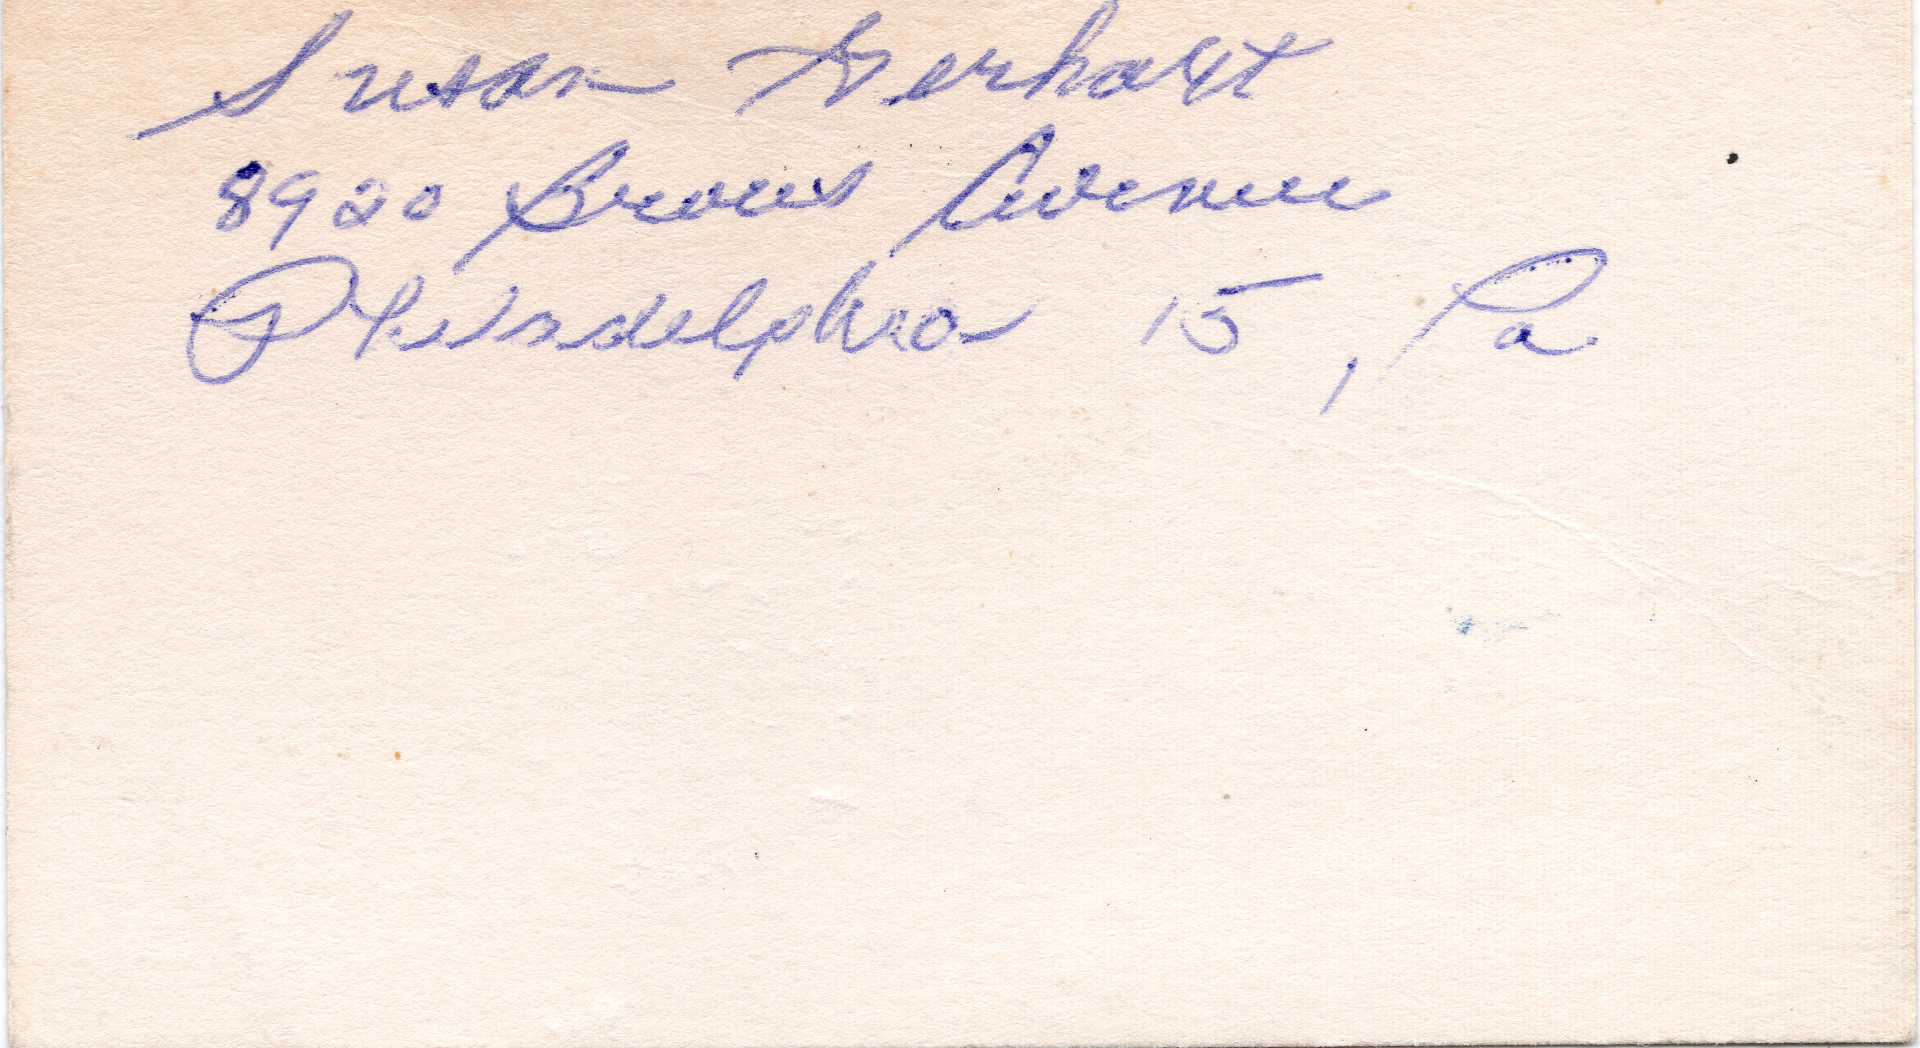 Susan Gerhart
8920 Brous Avenue
Philadelphia 15, Pa.